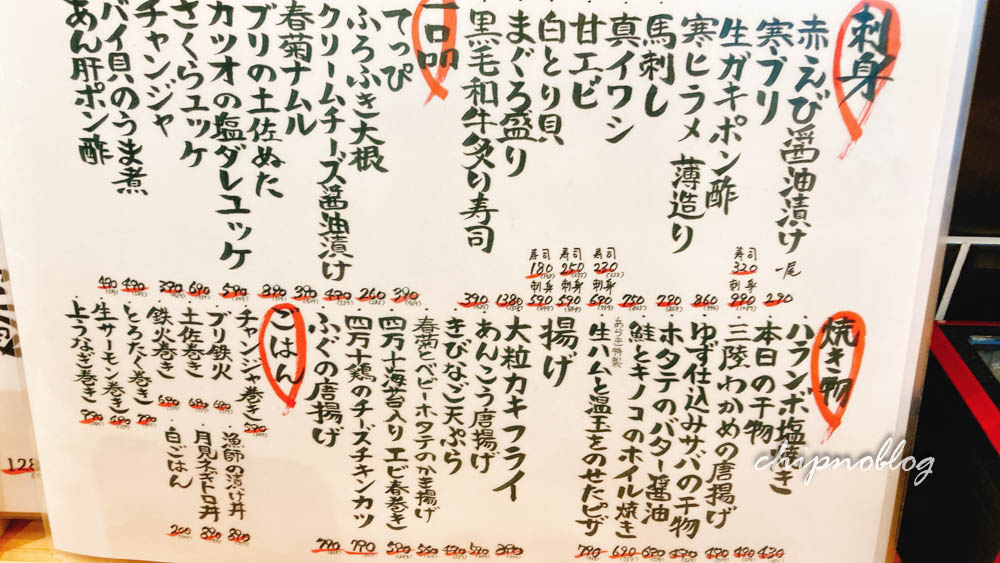 刺身
赤えび醤油漬け 一尾 290
寒ブリ
生ガキポン酢 寿司 320 刺身 990
寒ヒラメ 薄造り 860
馬刺し 790
真イワシ 寿司 230 刺身 690
甘エビ 寿司 250 刺身 590
白とり貝 寿司 180 刺身 590
まぐろ盛り 1380
黒毛和牛炙り寿司 390
一品
てっぴ 390
ふろふき大根 260
クリームチーズ醤油漬け 490
春菊ナムル 390
ブリの土佐ぬた 890
カツオの塩ダレユッケ 590
さくらユッケ 690
チャンジャ 390
バイ貝のうま煮 490
あん肝ポン酢 490
焼き物
ハランボ塩焼き 430
本日の干物 490
三陸わかめの唐揚げ 490
ゆず仕込みサバの干物 490
ホタテのバター醤油 690
鮭とキノコのホイル焼き 690
あらき特製
生ハムと温玉をのせたピザ 790
揚げ
大粒カキフライ 390
あんこう唐揚げ 590
きびなご天ぷら 490
春菊とベビーホタテのかき揚げ 560
四万十海苔入りエビ春巻き 590
四万十鶏のチーズチキンカツ 790
ふぐの唐揚げ 790
ごはん
チャンジャ巻き 590
ブリ鉄火 690
土佐巻き 690
鉄火巻き 690
とろたく巻き 790
生サーモン巻き 690
上うなぎ巻き 950
漁師の漬け丼 390
月見ネギトロ丼 390
白ごはん 200
128
chipnoblog